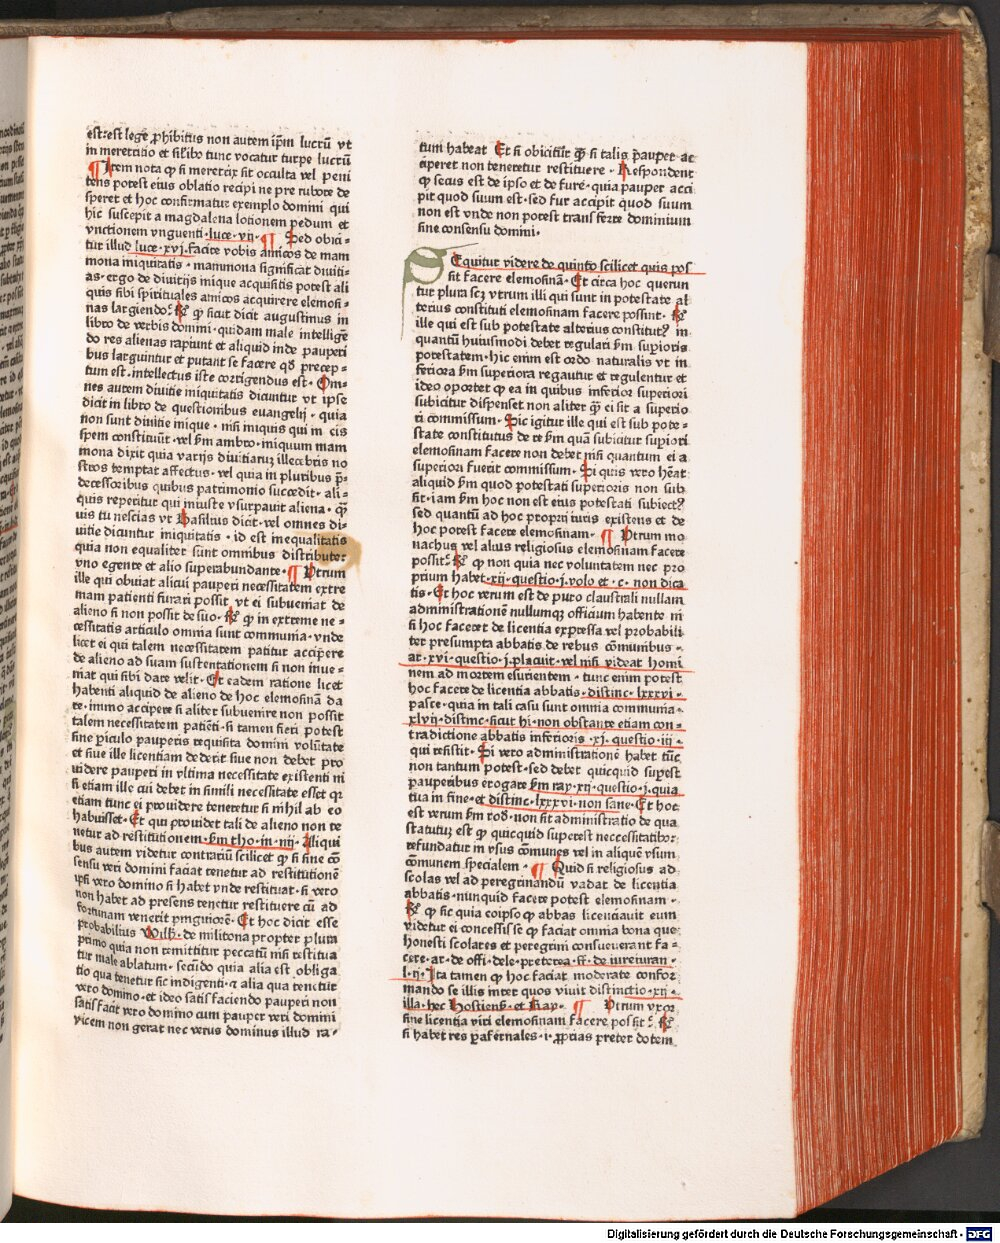 est:est lege ꝓhibitus non autem ip̄m lucrū vt
in meretritio et sil̄ibo tunc vocatur turpe lucrū
¶ Item nota ꝙ si meretrix sit occulta vel peni
tens potest eius oblatio recipi ne pre rubore de
speret et hoc confirmatur exemplo domini qui
hic suscepit a magdalena lotionem pedum et
vnctionem vnguenti·luce·vij· ¶ Sed obici-
tur illud luce·xvj·facite vobis amicos de mam
mona iniquitatis· mammona significat diuiti-
as·ergo de diuitijs inique acquisitis potest ali
quis sibi spirituales amicos acquirere elemosi-
nas largiendo· ꝙ sicut dicit augustinus in
libro de verbis domini·quidam male intelligē
do res alienas rapiunt et aliquid inde pauperi
bus larguintur et putant se facere qd̄ precep-
tum est·intellectus iste corrigendus est· Om-
nes autem diuitie iniquitatis dicuntur vt ipse
dicit in libro de questionibus euangelij· quia
non sunt diuitie inique·nisi iniquis qui in eis
spem constituūt·vel ẜm ambro·iniquum mam
mona dixit quia varijs diuitiarū illecebris no
stros temptat affectus·vel quia in pluribus p̄-
decessoribus quibus patrimonio succedit·ali-
quis reperitur qui iniuste vsurpauit aliena·q̄ꝫ
uis tu nescias vt Basilius dicit·vel omnes di-
uitie dicuntur iniquitatis·id est inequalitatis
quia non equaliter sunt omnibus distribute:
vno egente et alio superabundante· ¶ Vtrum
ille qui obuiat alicui pauperi necessitatem extre
mam patienti furari possit vt ei subueniat de
alieno si non possit de suo· ꝙ in extreme ne-
cessitatis articulo omnia sunt communia·vnde
licet ei qui talem necessitatem patitur accipere
de alieno ad suam sustentationem si non inue-
niat qui sibi dare velit·Et eadem ratione licet
habenti aliquid de alieno de hoc elemosinā da
re·immo accipere si aliter subuenire non possit
talem necessitatem patiēti·si tamen fieri potest
sine piculo pauperis requisita domini volūtate
et siue ille licentiam dederit siue non debet pro
uidere pauperi in vltima necessitate existenti ni
si etiam ille cui debet in simili necessitate esset qꝛ
etiam tunc ei prouidere teneretur si nihil ab eo
habuisset·Et qui prouidet tali de alieno non te
netur ad restitutionem·ẜm tho·in·iiij·Aliqui
bus autem videtur contrariū scilicet ꝙ si sine cō
sensu veri domini faciat tenetur ad restitutionē
ipsi vero domino si habet vnde restituat·si vero
non habet ad presens tenetur restituere cū ad
fortunam venerit pinguiorē·Et hoc dicit esse
probabilius Wilh̄·de militona propter plura
primo quia non remittitur peccatū nisi restitua
tur male ablatum·secūdo quia alia est obliga
tio qua tenetur sic indigenti·⁊ alia qua tenetur
vero domino·et ideo satisfaciendo pauperi non
satisfacit vero domino cum pauper veri domini
vicem non gerat nec verus dominus illud ra-
tum habeat Et si obicitur ꝙ si talis pauper ac
ciperet non teneretur restituere·Respondent
ꝙ secus est de ipso et de fure·quia pauper acci
pit quod suum est·sed fur accipit quod suum
non est vnde non potest transferre dominium
sine consensu domini·
SEquitur videre de quinto scilicet quis pos
sit facere elemosinā·Et circa hoc querun
tur plura scꝫ vtrum illi qui sunt in potestate al
terius constituti elemosinam facere possint·
ille qui est sub potestate alterius constitutꝰ in
quantū huiusmodi debet regulari ẜm supioris
potestatem·hic enim est ordo naturalis vt in
feriora ẜm superiora regantur et regulentur et
ideo oportet ꝙ ea in quibus inferior superiori
subicitur dispenset non aliter q̄ꝫ ei sit a superio
ri commissum·Sic igitur ille qui est sub pote-
state constitutus de re ẜm quā subicitur supiori
elemosinam facere non debet nisi quantum ei a
superiori fuerit commissum·Si quis vero hēat
aliquid ẜm quod potestati superioris non sub
sit·iam ẜm hoc non est eius potestati subiectꝰ
sed quantū ad hoc proprij iuris existens et de
hoc potest facere elemosinam· ¶ Vtrum mo
nachus vel alius religiosus elemosinam facere
possit· ꝙ non quia nec voluntatem nec pro
prium habet·xij·questio·j·volo et·c·non dica
tis·Et hoc verum est de puro claustrali nullam
administrationē nullumqꝫ officium habente ni
si hoc faceret de licentia expressa vel probabili
ter presumpta abbatis de rebus cōmunibus·
ar·xvi·questio·j·placuit·vel nisi videat homi
nem ad mortem esurientem·tunc enim potest
hoc facere de licentia abbatis·distinc·lxxxvi·
pasce·quia in tali casu sunt omnia communia·
xlvij·distinc·sicut hi·non obstante etiam con-
tradictione abbatis inferioris·xj·questio·iij·
qui resistit·Si vero administrationē habet tūc
non tantum potest·sed debet quicquid supest
pauperibus erogare ẜm ray·xij·questio·j·quia
tua in fine·et distinc·lxxxvi·non sane·Et hoc
est verum ẜm rod·non sit administratio de qua
statutuꝫ est ꝙ quicquid superest neccessitatibꝰ
refundatur in vsus cōmunes vel in aliquē vsum
cōmunem specialem· ¶ Quid si religiosus ad
scolas vel ad peregrinandū vadat de licentia
abbatis·nunquid facere potest elemosinam·
ꝙ sic quia eoipso ꝙ abbas licentiauit eum
videtur ei concessisse ꝙ faciat omnia bona que
honesti scolares et peregrini consueuerant fa-
cere·ar·de offi·dele·preterea·ff·de iureiuran·
l·ij·Ita tamen ꝙ hoc faciat moderate confor
mando se illis inter quos viuit distinctio·xij·
illa·hec Hostiens̄·et Ray· ¶ Vtrum vxor
sine licentia viri elemosinam facere possit·
si habet res parafernales·i·ꝓprias preter dotem
Digitalisierung gefördert durch die Deutsche Forschungsgemeinschaft - DFG